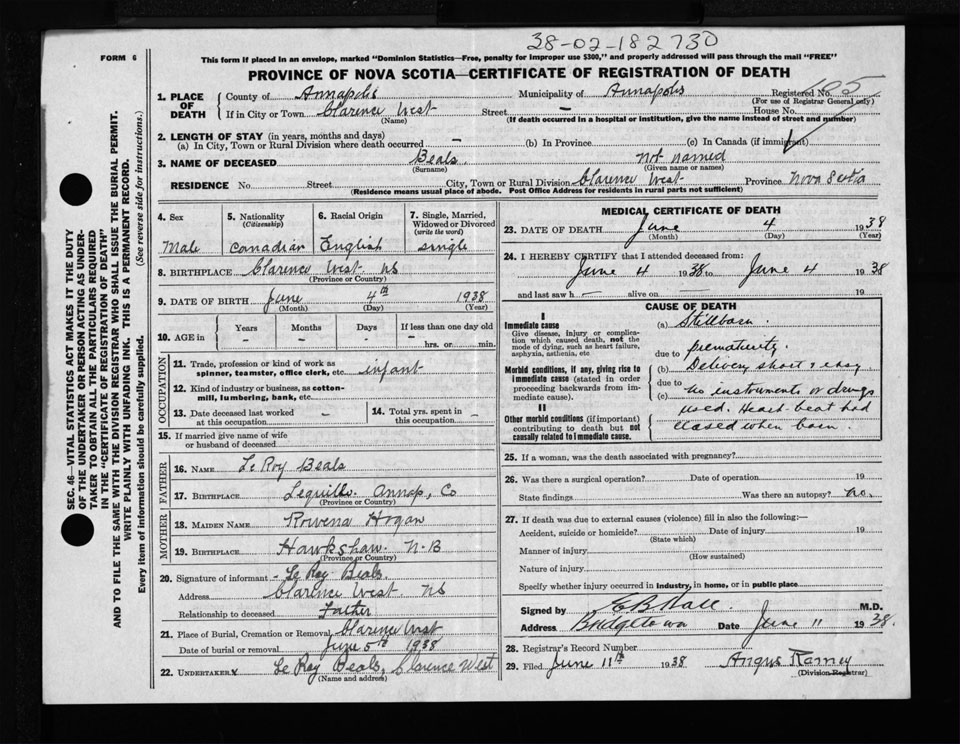 38-02-182730
FORM 6
This form if placed in an envelope, marked "Dominion Statistics—Free, penalty for improper use $300," and properly addressed will pass through the mail "FREE"
PROVINCE OF NOVA SCOTIA—CERTIFICATE OF REGISTRATION OF DEATH
SEC. 46—VITAL STATISTICS ACT MAKES IT THE DUTY
OF THE UNDERTAKER OR PERSON ACTING AS UNDER-
TAKER TO OBTAIN ALL THE PARTICULARS REQUIRED
IN THE "CERTIFICATE OF REGISTRATION OF DEATH"
AND TO FILE THE SAME WITH THE DIVISION REGISTRAR WHO SHALL ISSUE THE BURIAL PERMIT.
WRITE PLAINLY WITH UNFADING INK. THIS IS A PERMANENT RECORD.
Every item of information should be carefully supplied. (See reverse side for instructions.)
1. PLACE OF DEATH County of Annapolis Municipality of Annapolis Registered No. 105
(For use of Registrar General only)
If in City or Town Clarence West Street — House No.
(Name) (If death occurred in a hospital or institution, give the name instead of street and number)
2. LENGTH OF STAY (in years, months and days)
(a) In City, Town or Rural Division where death occurred — (b) In Province (c) In Canada (if immigrant)
3. NAME OF DECEASED Beals not named
(Surname) (Given name or names)
RESIDENCE No. Street City, Town or Rural Division Clarence West Province Nova Scotia
(Residence means usual place of abode. Post Office Address for residents in rural parts not sufficient)
4. Sex 5. Nationality (Citizenship) 6. Racial Origin 7. Single, Married, Widowed or Divorced (write the word)
Male Canadian English single
8. BIRTHPLACE Clarence West NS
(Province or Country)
9. DATE OF BIRTH June 4th 1938
(Month) (Day) (Year)
10. AGE IN Years Months Days If less than one day old
- - - - hrs. or min.
OCCUPATION
11. Trade, profession or kind of work as spinner, teamster, office clerk, etc. infant
12. Kind of industry or business, as cotton-mill, lumbering, bank, etc.
13. Date deceased last worked at this occupation - 14. Total yrs. spent in this occupation -
15. If married give name of wife or husband of deceased
FATHER
16. NAME Le Roy Beals
17. BIRTHPLACE Lequille Annap, Co
(Province or Country)
MOTHER
18. MAIDEN NAME Rowena Hogan
19. BIRTHPLACE Hawkshaw N-B
(Province or Country)
20. Signature of informant - Le Roy Beals.
Address Clarence West NS
Relationship to deceased Father
21. Place of Burial, Cremation or Removal Clarence West
Date of burial or removal June 5th 1938
22. UNDERTAKER Le Roy Beals, Clarence West
(Name and address)
MEDICAL CERTIFICATE OF DEATH
23. DATE OF DEATH June 4 1938
(Month) (Day) (Year)
24. I HEREBY CERTIFY that I attended deceased from:
June 4 1938 to June 4 1938
and last saw h — alive on — 19
CAUSE OF DEATH
I
Immediate cause
Give disease, injury or complication which caused death, not the mode of dying, such as heart failure, asphyxia, asthenia, etc
(a) Stillborn.
due to prematurity.
Morbid conditions, if any, giving rise to immediate cause (stated in order proceeding backwards from immediate cause).
(b) Delivery short & easy,
due to
(c) no instruments or drugs
II
Other morbid conditions (if important) contributing to death but not causally related to immediate cause.
used. Heart beat had
ceased when born.
25. If a woman, was the death associated with pregnancy?
26. Was there a surgical operation? Date of operation 19
State findings Was there an autopsy? no.
27. If death was due to external causes (violence) fill in also the following:—
Accident, suicide or homicide? Date of injury 19
(State which)
Manner of injury
(How sustained)
Nature of injury
Specify whether injury occurred in industry, in home, or in public place
Signed by E B Hall. M.D.
Address Bridgetown Date June 11 1938.
28. Registrar's Record Number
29. Filed June 11th 1938 Angus Ramey
(Division Registrar)